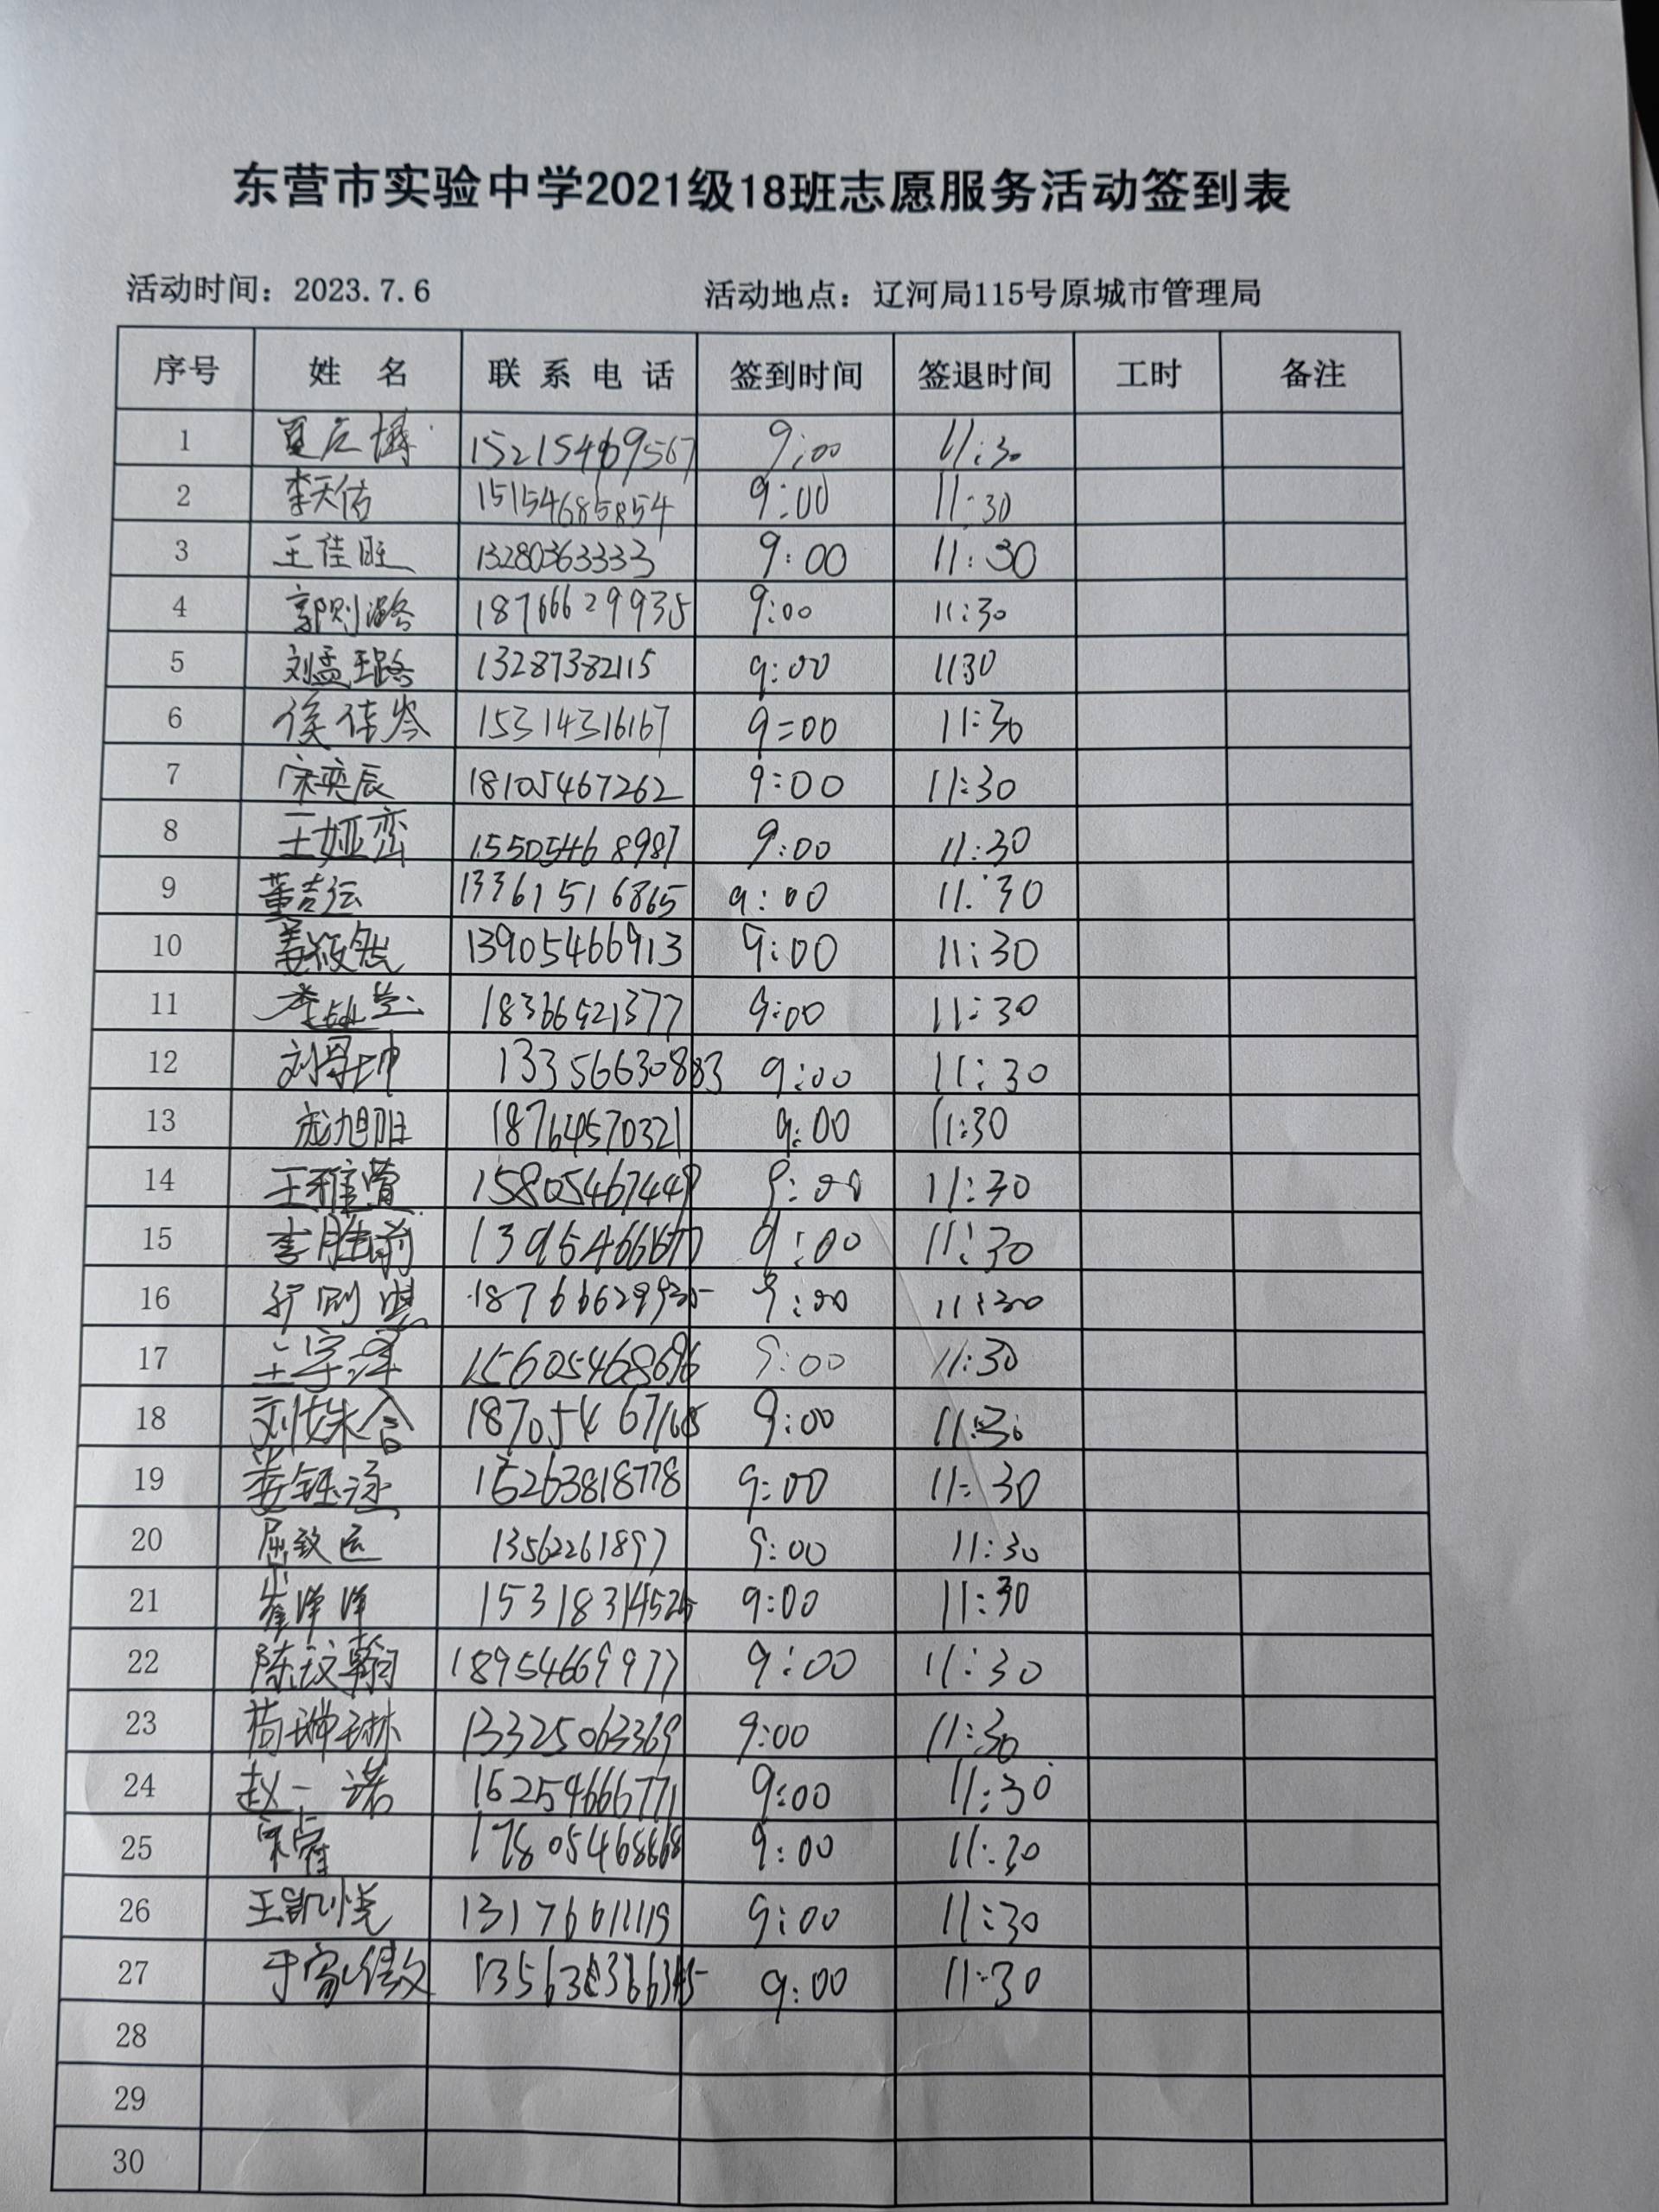 东营市实验中学2021级18班志愿服务活动签到表
活动时间：2023.7.6 活动地点：辽河局115号原城市管理局
序号 姓 名 联 系 电 话 签到时间 签退时间 工时 备注
1 15215469567 9:00 11:30
2 李天佑 15154685854 9:00 11:30
3 王佳旺 13280363333 9:00 11:30
4 郭则潞 18766629935 9:00 11:30
5 刘孟璐 13287382115 9:00 1130
6 侯佳岑 15314316167 9:00 11:30
7 宋奕辰 18105467262 9:00 11:30
8 王娅峦 15505468987 9:00 11:30
9 董吉纭 13361516865 9:00 11:30
10 姜筱然 13905466913 9:00 11:30
11 18366521377 9:00 11:30
12 13356630883 9:00 11:30
13 庞旭旺 18764570321 9:00 11:30
14 王雅萱 15805467449 9:00 11:30
15 李胜前 9:00 11:30
16 18766629935 9:00 11:30
17 王宇泽 15605468696 9:00 11:30
18 刘姝含 18705467168 9:00 11:30
19 娄钰涵 15263818778 9:00 11:30
20 屈致远 13562261897 9:00 11:30
21 崔泽泽 9:00 11:30
22 陈玟翰 18954669977 9:00 11:30
23 荀琳琳 13325063369 9:00 11:30
24 赵一诺 16254666771 9:00 11:30
25 宋睿 17805468668 9:00 11:30
26 王凯悦 13176611119 9:00 11:30
27 于家傲 9:00 11:30
28
29
30